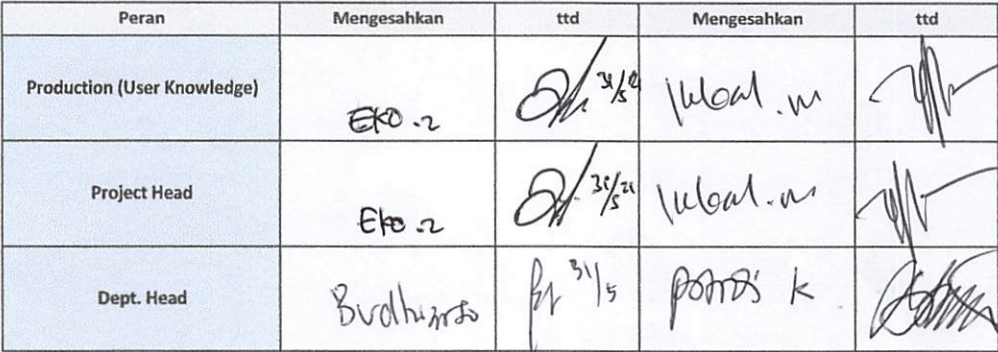 Peran Mengesahkan ttd Mengesahkan ttd
Production (User Knowledge) EKO .2 31/5 Iqbal . m
Project Head Eko .2 31/5 21 Iqbal . m
Dept. Head 31/5 K